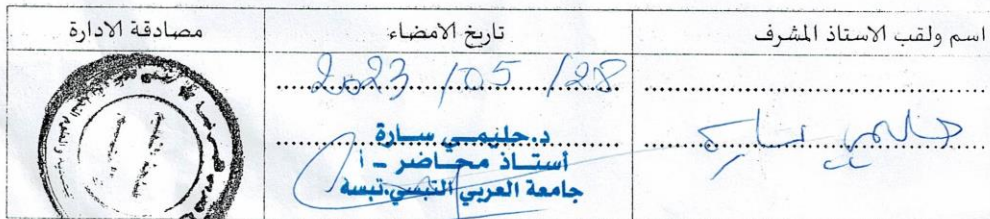 اسم ولقب الاستاذ المشرف
تاريخ الامضاء
مصادقة الادارة
حليمي سارة
2023 /05 /28
د.حليمي سارة
أستاذ محاضر - أ
جامعة العربي التبسي.تبسة